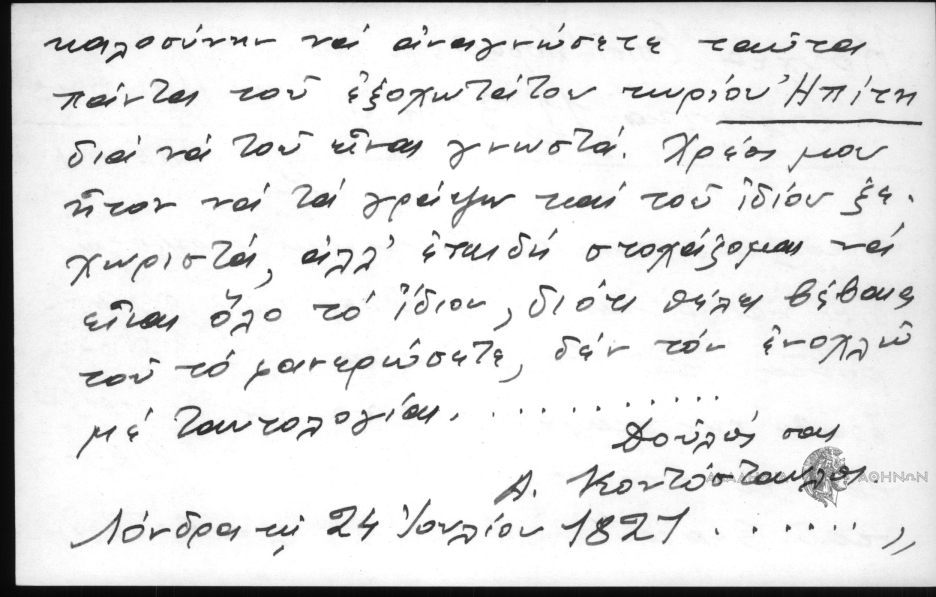 καλοσύνην νά ἀναγνώσετε ταῦτα
πάντα τοῦ ἐξοχωτάτου κυρίου Ἠπίτη
διά νά τοῦ εἶναι γνωστά. Χρέος μου
ἦτον νά τά γράψω καί τοῦ ἰδίου ξε-
χωριστά, ἀλλ' ἐπειδή στοχάζομαι νά
εἶναι ὅλο τό ἴδιον, διότι θέλει βέβαια
τοῦ τό φανερώσετε, δέν τόν ἐνοχλῶ
μέ ταυτολογίαι. . . . . . . . . . .
Δοῦλός σας
Α. Κοντόσταυλος.
ΑΘΗΝΩΝ
Λόνδρα τῇ 24 Ἰουλίου 1821 . . . . . . ,,